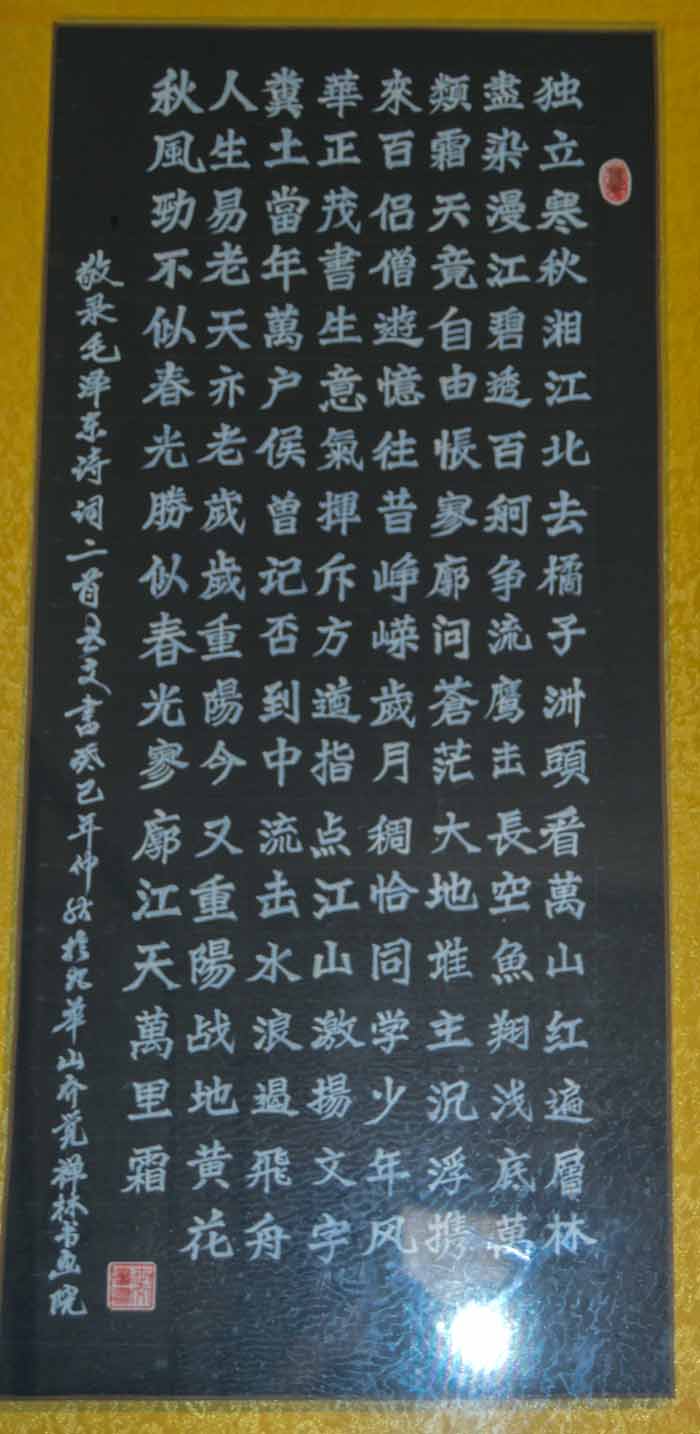 独立寒秋湘江北去橘子洲頭看萬山红遍層林
盡染漫江碧透百舸争流鹰击長空魚翔浅底萬
類霜天竟自由悵寥廓问蒼茫大地谁主沉浮携
來百侣僧遊憶往昔峥嵘歲月稠恰同学少年风
華正茂書生意氣揮斥方遒指点江山激揚文字
糞土當年萬户侯曾记否到中流击水浪遏飛舟
人生易老天亦老歲歲重陽今又重陽战地黄花
秋風勁不似春光勝似春光寥廓江天萬里霜
敬录毛泽东诗词二首文書癸巳年仲秋於九華山齐觉禅林书画院